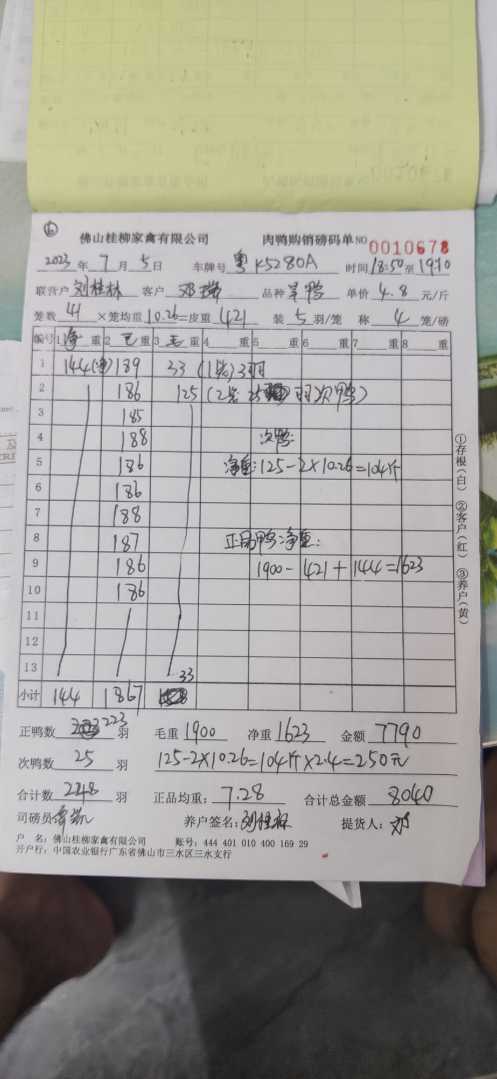 ⑥
佛山桂柳家禽有限公司 肉鸭购销磅码单 NO 0010678
2023 年 7 月 5 日 车牌号 粤K5280A 时间 18:50 至 19:10
联营户 刘桂林 客户 邓 品种 单价 4.8 元/斤
笼数 41 ×笼均重 10.26 =皮重 421 装 5 羽/笼 称 4 笼/磅
编号 1 净 重 2 毛 重 3 毛 重 4 重 5 重 6 重 7 重 8 重
1 144(净) 189 33 (1笼)3羽
2 186 125 (2笼 25 羽次鸭)
3 185
4 188 次鸭:
5 186 净重:125-2×10.26=104斤
6 186
7 188
8 187 正品鸭净重:
9 186 1900-421+144=1623
10 186
11
12
13
小计 144 1867 33
正鸭数 223 羽 毛重 1900 净重 1623 金额 7790
次鸭数 25 羽 125-2×10.26=104斤×2.4=250元
合计数 248 羽 正品均重: 7.28 合计总金额 8040
司磅员 养户签名: 刘桂林 提货人: 邓
户 名: 佛山桂柳家禽有限公司 账号: 444 401 010 400 169 29
开户行: 中国农业银行广东省佛山市三水区三水支行
①存根(白) ②客户(红) ③养户(黄)